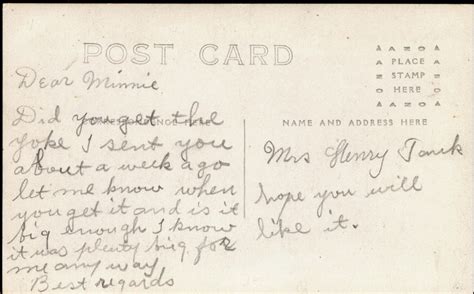 POST CARD
ANSCO
PLACE
STAMP
HERE
ANSCO
Dear Minnie.
CORRESPONDENCE HERE
NAME AND ADDRESS HERE
Did you get the
yoke I sent you
about a week ago
let me know when
you get it and is it
big enough I know
it was plenty big for
me any way
Best regards
Mrs Henry
hope you will
like it.